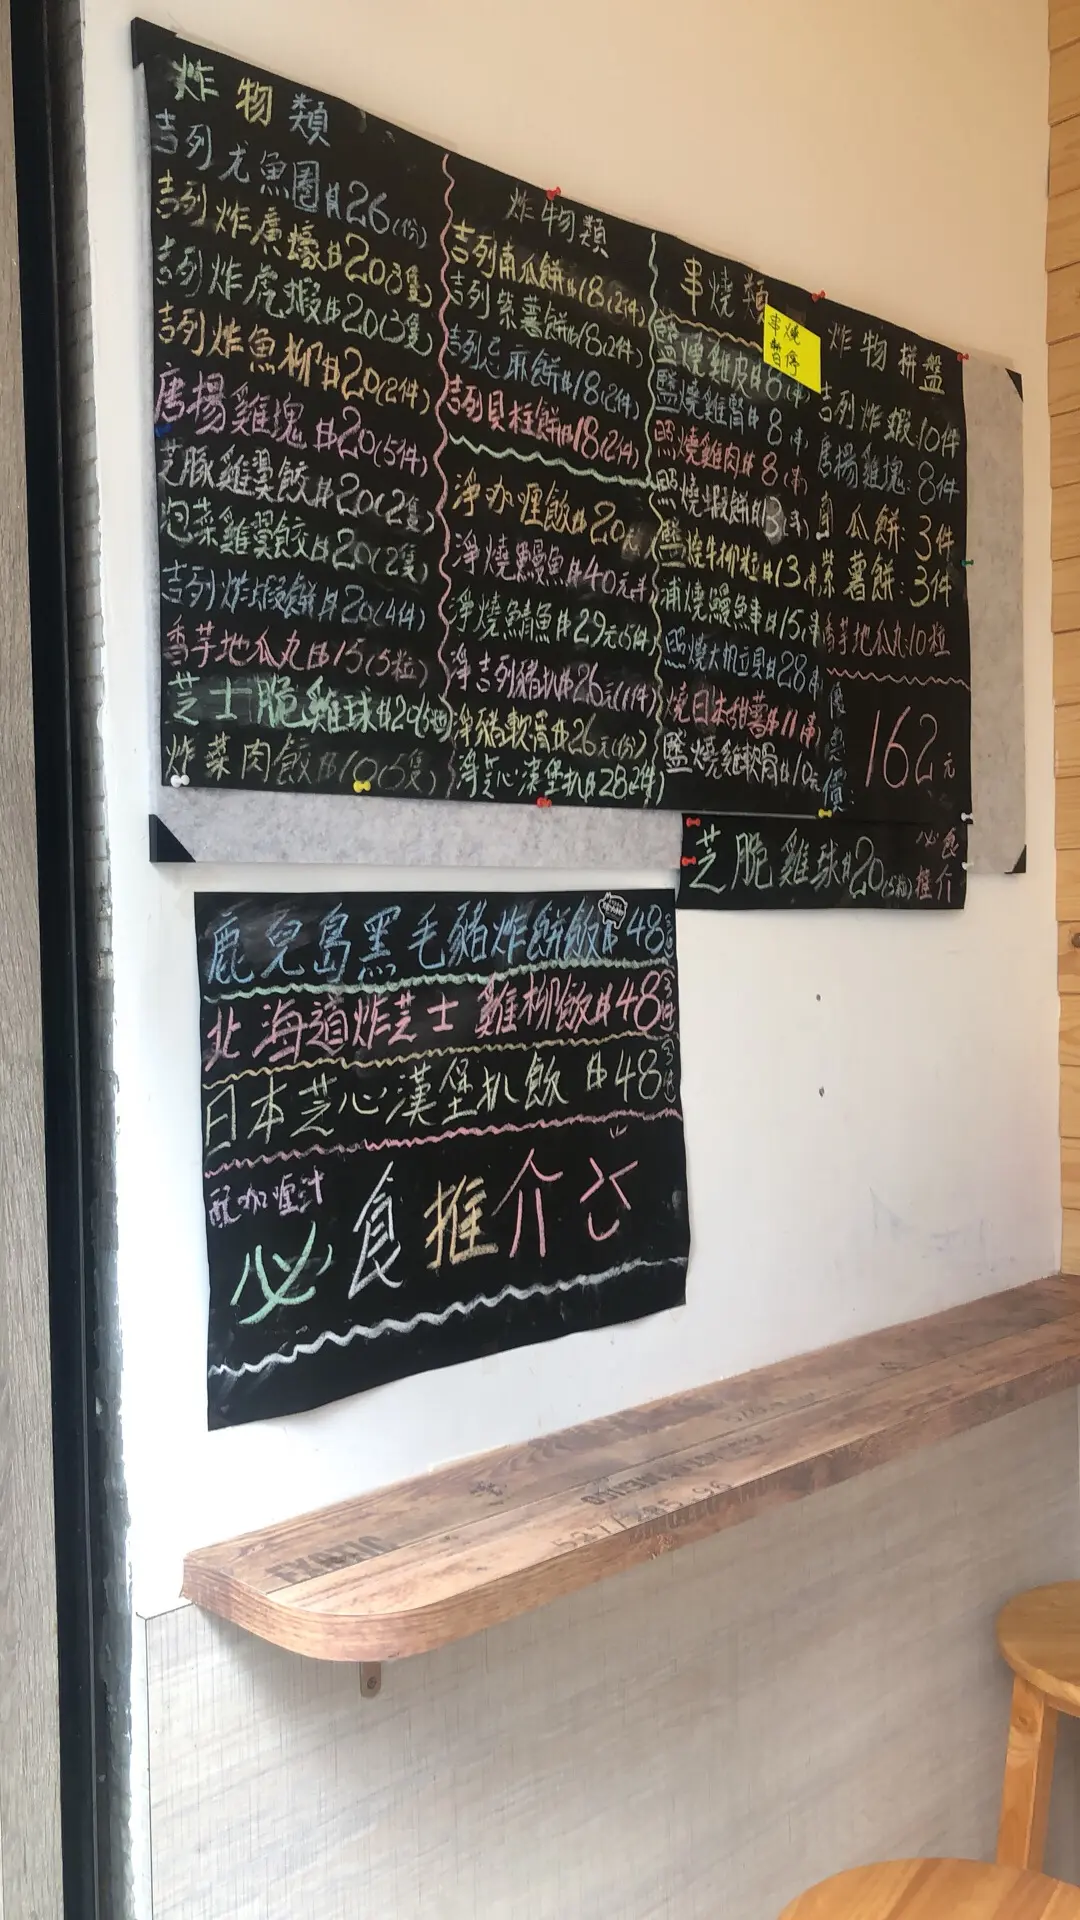 炸物類
吉列尤魚圈$26(份)
吉列炸廣蠔$20(3隻)
吉列炸虎蝦$20(3隻)
吉列炸魚柳$20(2件)
唐揚雞塊$20(5件)
芝豚雞翼餃$20(2隻)
泡菜雞翼餃$20(2隻)
吉列炸蝦餅$20(4件)
香芋地瓜丸$15(5粒)
芝士脆雞球$20(5粒)
炸菜肉餃$10(5隻)
炸物類
吉列南瓜餅$18(2件)
吉列紫薯餅$18(2件)
吉列芝麻餅$18(2件)
吉列貝柱餅$18(2件)
淨咖喱飯$20元
淨燒鰻魚$40元
淨燒鯖魚$29元(5件)
淨吉列豬扒$26元(1件)
淨豬軟骨$26元(份)
淨芝心漢堡扒$28(2件)
串燒類
串燒
暫停
鹽燒雞皮$8(串)
鹽燒雞腎$8(串)
照燒雞肉$8(串)
照燒蝦餅$13(串)
鹽燒牛柳粒$13串
浦燒鰻魚串$15串
照燒大帆立貝$28串
燒日本甜薯$11串
鹽燒雞軟骨$10元
炸物拼盤
吉列炸蝦:10件
唐揚雞塊:8件
南瓜餅:3件
紫薯餅:3件
香芋地瓜丸:10粒
優惠價:
162元
芝脆雞球$20(5粒)
必食
推介
鹿兒島黑毛豬炸餅飯$48
北海道炸芝士雞柳飯$48
日本芝心漢堡扒飯$48
配咖喱汁
必食推介
EXOTIC
MEXICO